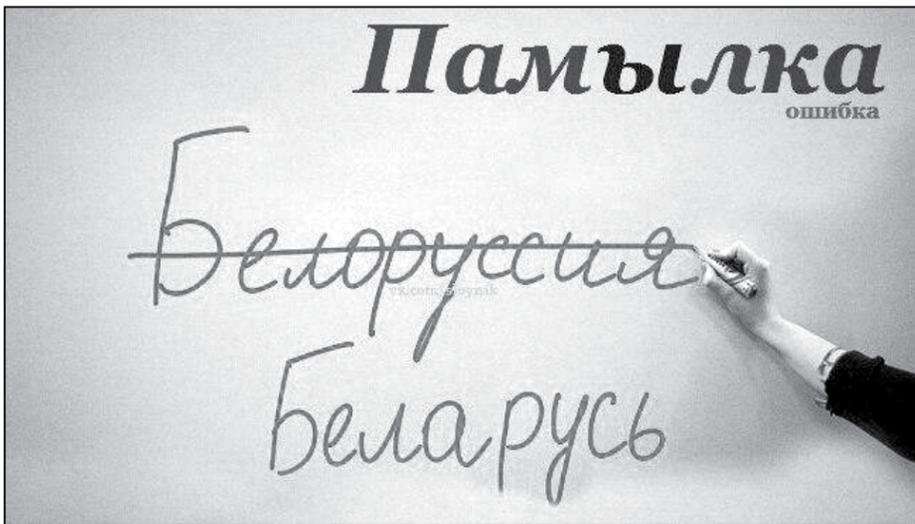 Памылка
ошибка
Белоруссия
vk.com/sloynik
Беларусь